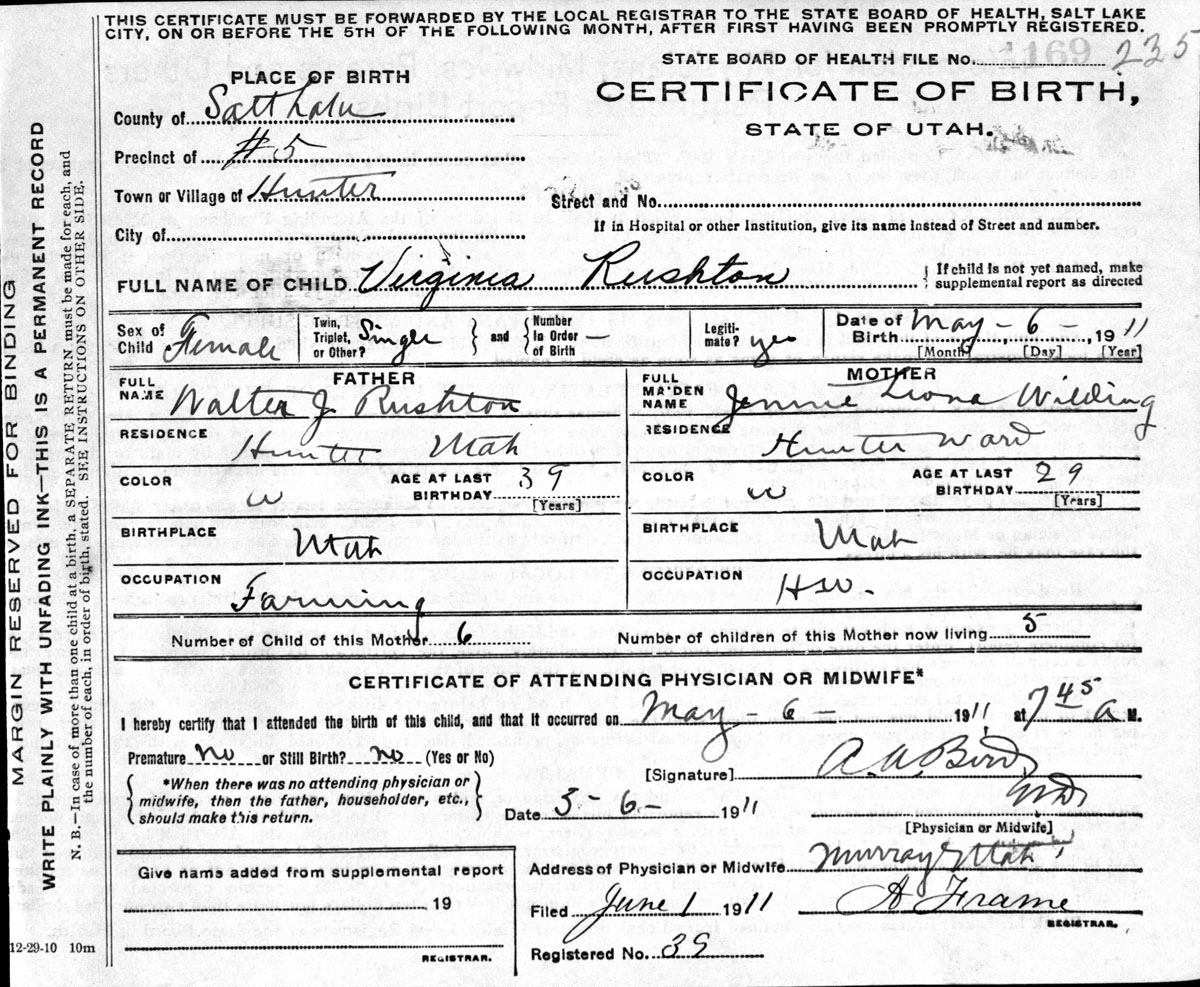 THIS CERTIFICATE MUST BE FORWARDED BY THE LOCAL REGISTRAR TO THE STATE BOARD OF HEALTH, SALT LAKE
CITY, ON OR BEFORE THE 5TH OF THE FOLLOWING MONTH, AFTER FIRST HAVING BEEN PROMPTLY REGISTERED.
STATE BOARD OF HEALTH FILE No. 1169 235
CERTIFICATE OF BIRTH,
STATE OF UTAH.
PLACE OF BIRTH
County of Salt Lake
Precinct of #5
Town or Village of Hunter
Street and No.
City of
If in Hospital or other Institution, give its name instead of Street and number.
FULL NAME OF CHILD Virginia Rushton { If child is not yet named, make
supplemental report as directed
Sex of
Child Female
Twin,
Triplet,
or Other? Single
and
Number
In Order
of Birth
Legiti-
mate? yes
Date of
Birth May - 6 - 1911
[Month] [Day] [Year]
FATHER
FULL
NAME Walter J Rushton
RESIDENCE
Hunter Utah
COLOR w AGE AT LAST
BIRTHDAY 39
[Years]
BIRTHPLACE
Utah
OCCUPATION
Farming
MOTHER
FULL
MAIDEN
NAME Jennie Liona Wilding
RESIDENCE
Hunter Ward
COLOR w AGE AT LAST
BIRTHDAY 29
[Years]
BIRTHPLACE
Utah
OCCUPATION
H.W.
Number of Child of this Mother 6 Number of children of this Mother now living 5
CERTIFICATE OF ATTENDING PHYSICIAN OR MIDWIFE*
I hereby certify that I attended the birth of this child, and that it occurred on May - 6 1911 at 7 45 a M.
Premature no or Still Birth? no (Yes or No)
*When there was no attending physician or
midwife, then the father, householder, etc.,
should make this return.
[Signature] A. A. Bird
MD
[Physician or Midwife]
Date 5-6- 1911
Address of Physician or Midwife Murray Utah
Give name added from supplemental report
19
REGISTRAR.
Filed June 1 1911 A Frame
REGISTRAR.
Registered No. 39
12-29-10 10m
MARGIN RESERVED FOR BINDING
WRITE PLAINLY WITH UNFADING INK—THIS IS A PERMANENT RECORD
N. B.—In case of more than one child at a birth, a SEPARATE RETURN must be made for each, and
the number of each, in order of birth, stated. SEE INSTRUCTIONS ON OTHER SIDE.